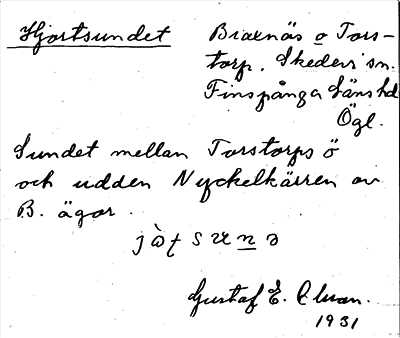 Hjortsundet
Bixenäs o Tors-
torp. Skedevi sn.
Finspånga läns hd
Ögl.
Sundet mellan Torstorps ö
och udden Nyckelkärren av
B. ägor.
Gustaf E.
1931